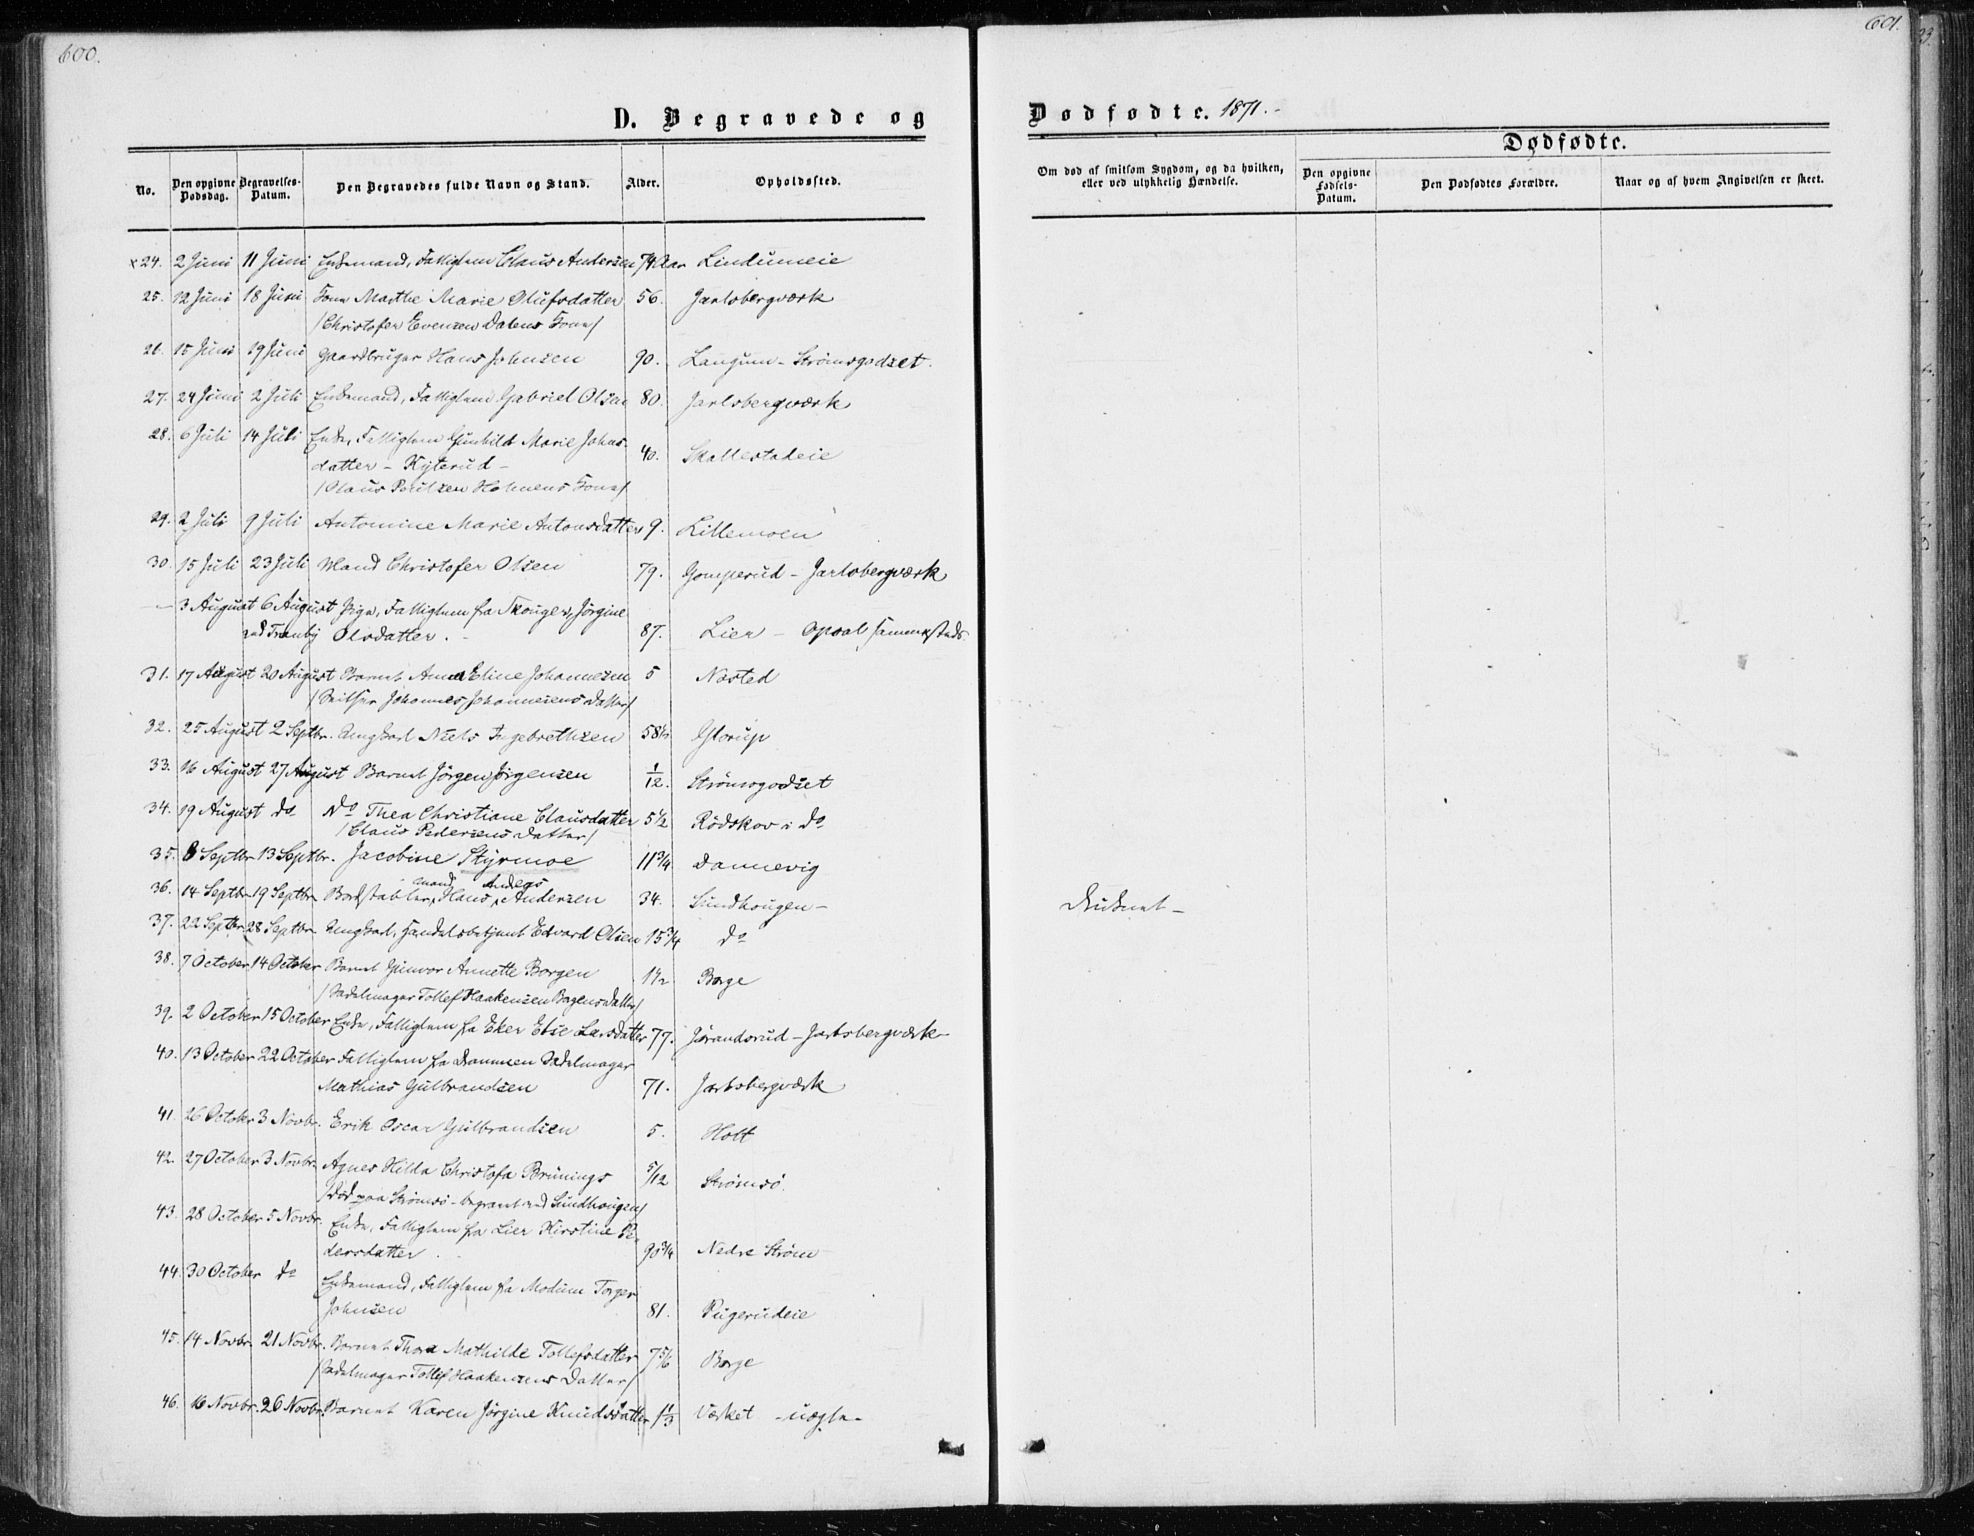 600.
601.
D. Begravede og
Dødfødte. 1871.-
No.
Den opgivne Dødsdag.
Begravelses-Datum.
Den Begravedes fulde Navn og Stand.
Alder.
Opholdssted.
Om død af smitsom Sygdom, og da hvilken, eller ved ulykkelig Hændelse.
Dødfødte.
Den opgivne Fødsels-Datum.
Den Dødfødtes Forældre.
Naar og af hvem Angivelsen er skeet.
x24. 2 Juni 11 Juni Enkemand, Fattiglem Claus Andersen 74 Aar Lindumeie
25. 12 Juni 18 Juni Kone Marthe Marie Olufsdatter 56. Jarlsbergværk
/Christofer Evensen Dalens Kone/
26. 15 Juni 19 Juni Gaardbruger Hans Johnsen 90. Langum - Strømsgodset.
27. 24 Juni 2 Juli Enkemand, Fattiglem Gabriel Olsen 80. Jarlsbergværk
28. 6 Juli 14 Juli Enke, Fattiglem Gunhild Marie Johns-
datter - Kyterud - 40. Skallestadeie
/Claus Poulsen Holmens Kone/
29. 2 Juli 9 Juli Antomine Marie Antonsdatter 9. Lillemoen
30. 15 Juli 23 Juli Mand Christofer Olsen 79. Gomperud - Jarlsbergværk
- 3 August 6 August Pige, Fattiglem fra Skouger, Jörgine
ved Tranby Olsdatter. - 87. Lier - Opsal sammesteds
31. 17 August 20 August Barnet Anna Eline Johannesen 5 Nøsted
/ Johannes Johannesens Datter/
32. 25 August 2 Septbr. Ungkarl Niels Ingebrethsen 58½ Glorup
33. 16 August 27 August Barnet Jörgen Jörgensen 1/12. Strömsgodset
34. 19 August do Do Thea Christiane Clausdatter 5½ Rödskov i Do
/Claus Pedersens Datter/
35. 8 Septbr. 13 Septbr. Jacobine Styrmoe 11¾ Dannevig
36. 14 Septbr. 19 Septbr. Bordstabler, mand Hans Anders Andersen 34. Sundhougen - Druknet -
37. 22 Septbr. 28 Septbr. Ungkarl, Handelsbetjent Edvard Olsen 15¾ Do
38. 7 October 14 October Barnet Gunvor Annette Borgen 1½ Borge
/Sadelmager Tollef Haakensen Borgens Datter/
39. 2 October 15 October Enke, Fattiglem fra Eker Else Larsdatter 77. Jörandsrud - Jarlsbergværk
40. 13 October 22 October Fattiglem fra Drammen Sadelmager
Mathias Gulbrandsen 71. Jarlsbergværk
41. 26 October 3 Novbr. Erik Oscar Gulbrandsen 5. Holt
42. 27 October 3 Novbr. Agnes Hilda Christofa Brünings 5/12 Strömsö
/død paa Strömsö - begravet ved Sundhougen/
43. 28 October 5 Novbr. Enke, Fattiglem fra Lier Kirstine Pe-
dersdatter. 90¾ Nedre Ström
44. 30 October do Enkemand, Fattiglem fra Modum Torger
Johnsen 81. Pugerudeie
45. 14 Novbr. 21 Novbr. Barnet Thora Mathilde Tollefsdatter 7 5/6 Borge
/Sadelmager Tollef Haakensens Datter/
46. 16 Novbr. 26 Novbr. Barnet Karen Jörgine Knudsdatter 1⅓ Værket - uægte -